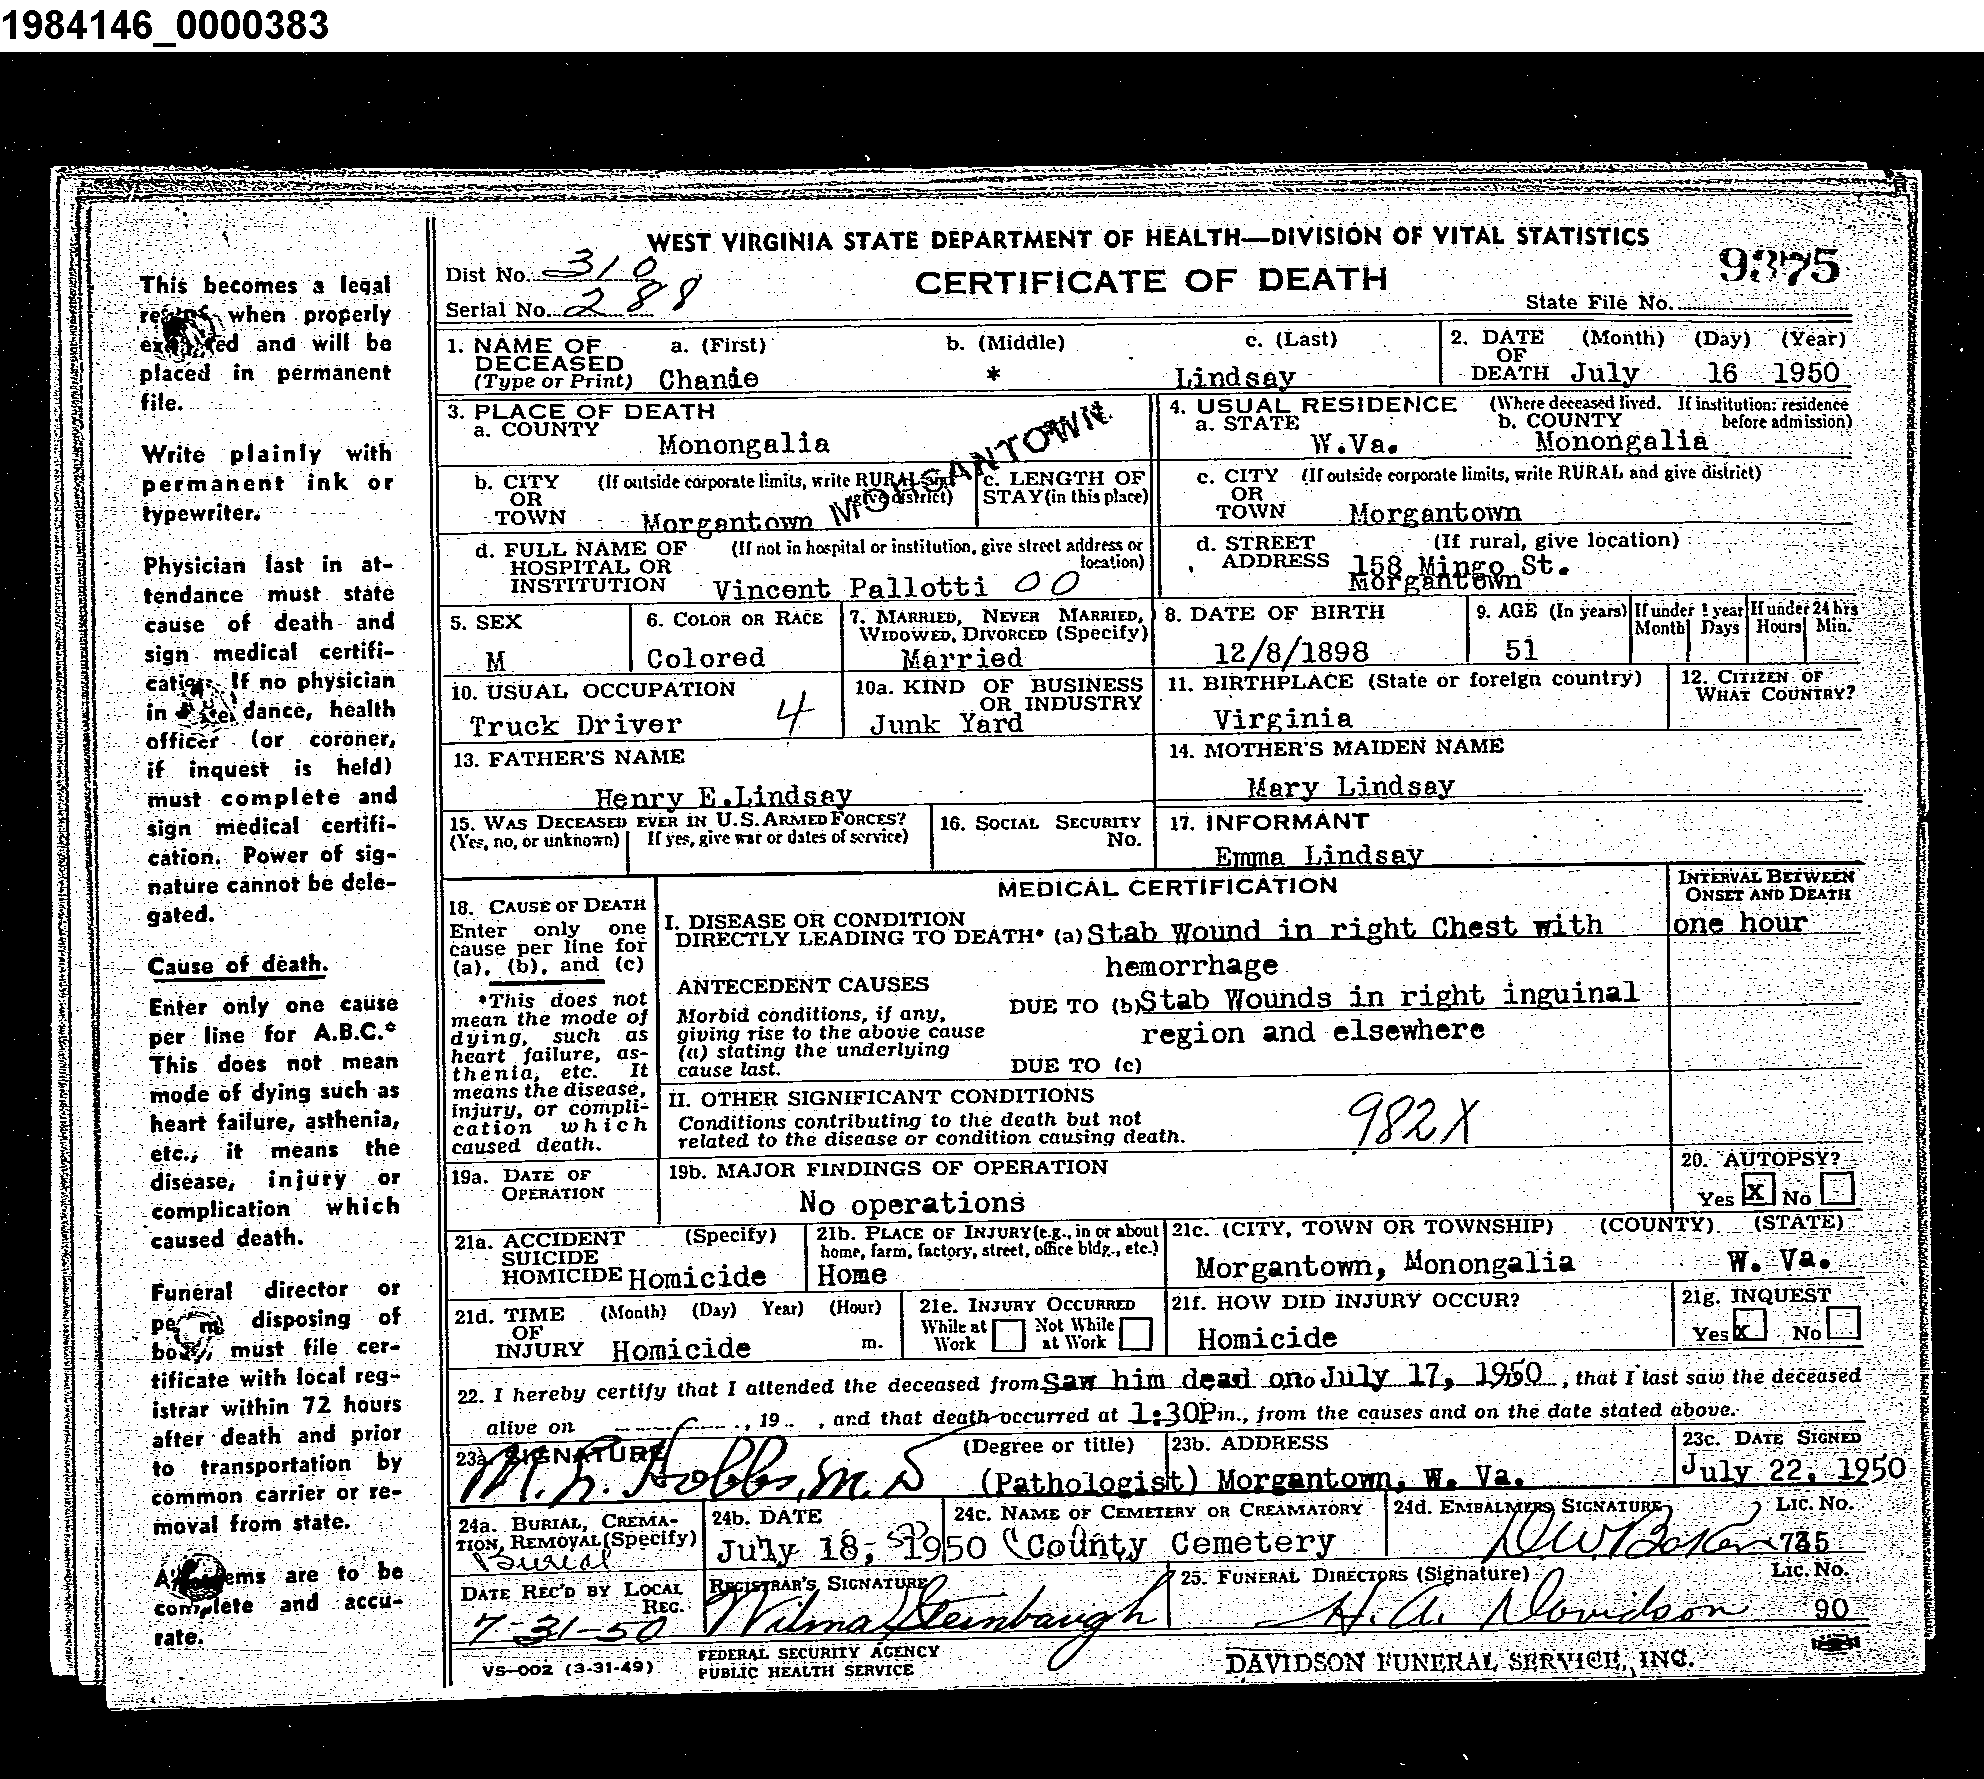 1984146_0000383
WEST VIRGINIA STATE DEPARTMENT OF HEALTH—DIVISION OF VITAL STATISTICS
CERTIFICATE OF DEATH
Dist No. 310
Serial No. 288
9375
State File No.
This becomes a legal
when properly
and will be
placed in permanent
file.
Write plainly with
permanent ink or
typewriter.
Physician last in at-
tendance must state
cause of death and
sign medical certifi-
cation. If no physician
in dance, health
officer (or coroner,
if inquest is held)
must complete and
sign medical certifi-
cation. Power of sig-
nature cannot be dele-
gated.
Cause of death.
Enter only one cause
per line for A.B.C.*
This does not mean
mode of dying such as
heart failure, asthenia,
etc., it means the
disease, injury or
complication which
caused death.
Funeral director or
disposing of
must file cer-
tificate with local reg-
istrar within 72 hours
after death and prior
to transportation by
common carrier or re-
moval from state.
are to be
complete and accu-
rate.
1. NAME OF DECEASED (Type or Print) a. (First) b. (Middle) c. (Last)
Chanie * Lindsay
2. DATE OF DEATH (Month) (Day) (Year)
July 16 1950
3. PLACE OF DEATH
a. COUNTY
Monongalia
MORGANTOWN.
4. USUAL RESIDENCE (Where deceased lived. If institution: residence before admission)
a. STATE W.Va. b. COUNTY Monongalia
b. CITY OR TOWN (If outside corporate limits, write RURAL and give district)
Morgantown
c. LENGTH OF STAY (in this place)
c. CITY OR TOWN (If outside corporate limits, write RURAL and give district)
Morgantown
d. FULL NAME OF HOSPITAL OR INSTITUTION (If not in hospital or institution, give street address or location)
Vincent Pallotti 00
d. STREET ADDRESS (If rural, give location)
158 Mingo St.
Morgantown
5. SEX
M
6. COLOR OR RACE
Colored
7. MARRIED, NEVER MARRIED, WIDOWED, DIVORCED (Specify)
Married
8. DATE OF BIRTH
12/8/1898
9. AGE (In years) If under 1 year Month Days If under 24 hrs Hours Min.
51
10. USUAL OCCUPATION
Truck Driver 4
10a. KIND OF BUSINESS OR INDUSTRY
Junk Yard
11. BIRTHPLACE (State or foreign country)
Virginia
12. CITIZEN OF WHAT COUNTRY?
13. FATHER'S NAME
Henry E.Lindsay
14. MOTHER'S MAIDEN NAME
Mary Lindsay
15. WAS DECEASED EVER IN U.S. ARMED FORCES?
(Yes, no, or unknown) If yes, give war or dates of service)
16. SOCIAL SECURITY No.
17. INFORMANT
Emma Lindsay
MEDICAL CERTIFICATION
INTERVAL BETWEEN ONSET AND DEATH
18. CAUSE OF DEATH
Enter only one
cause per line for
(a), (b), and (c)
*This does not
mean the mode of
dying, such as
heart failure, as-
thenia, etc. It
means the disease,
injury, or compli-
cation which
caused death.
I. DISEASE OR CONDITION
DIRECTLY LEADING TO DEATH* (a) Stab Wound in right Chest with one hour
hemorrhage
ANTECEDENT CAUSES
Morbid conditions, if any,
giving rise to the above cause
(a) stating the underlying
cause last.
DUE TO (b) Stab Wounds in right inguinal
region and elsewhere
DUE TO (c)
II. OTHER SIGNIFICANT CONDITIONS
Conditions contributing to the death but not
related to the disease or condition causing death.
982X
19a. DATE OF OPERATION
19b. MAJOR FINDINGS OF OPERATION
No operations
20. AUTOPSY?
Yes X No
21a. ACCIDENT SUICIDE HOMICIDE (Specify)
Homicide
21b. PLACE OF INJURY (e.g., in or about home, farm, factory, street, office bldg., etc.)
Home
21c. (CITY, TOWN OR TOWNSHIP) (COUNTY) (STATE)
Morgantown, Monongalia W. Va.
21d. TIME OF INJURY (Month) (Day) Year) (Hour) m.
Homicide
21e. INJURY OCCURRED
While at Work Not While at Work
21f. HOW DID INJURY OCCUR?
Homicide
21g. INQUEST
Yes X No
22. I hereby certify that I attended the deceased from Saw him dead ono July 17, 1950, that I last saw the deceased
alive on , 19 , and that death occurred at 1:30P m., from the causes and on the date stated above.
23a. SIGNATURE (Degree or title)
M. L. Hobbs, M.D (Pathologist)
23b. ADDRESS
Morgantown, W. Va.
23c. DATE SIGNED
July 22, 1950
24a. BURIAL, CREMATION, REMOVAL (Specify)
Burial
24b. DATE
July 18, 1950
24c. NAME OF CEMETERY OR CREAMATORY
County Cemetery
24d. EMBALMERS SIGNATURE Lic. No.
DW Baker 735
DATE REC'D BY LOCAL REG.
7-31-50
REGISTRAR'S SIGNATURE
Wilma Steinbaugh
25. FUNERAL DIRECTORS (Signature) Lic. No.
H. A. Davidson 90
VS-002 (3-31-49)
FEDERAL SECURITY AGENCY
PUBLIC HEALTH SERVICE
DAVIDSON FUNERAL SERVICE, INC.